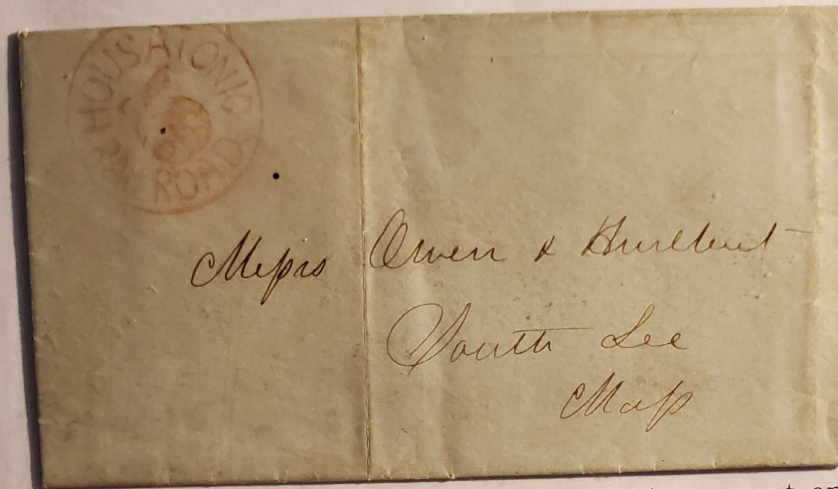 HOUSATONIC
RAILROAD
Messrs Owen & Hurlbut
South Lee
Mass